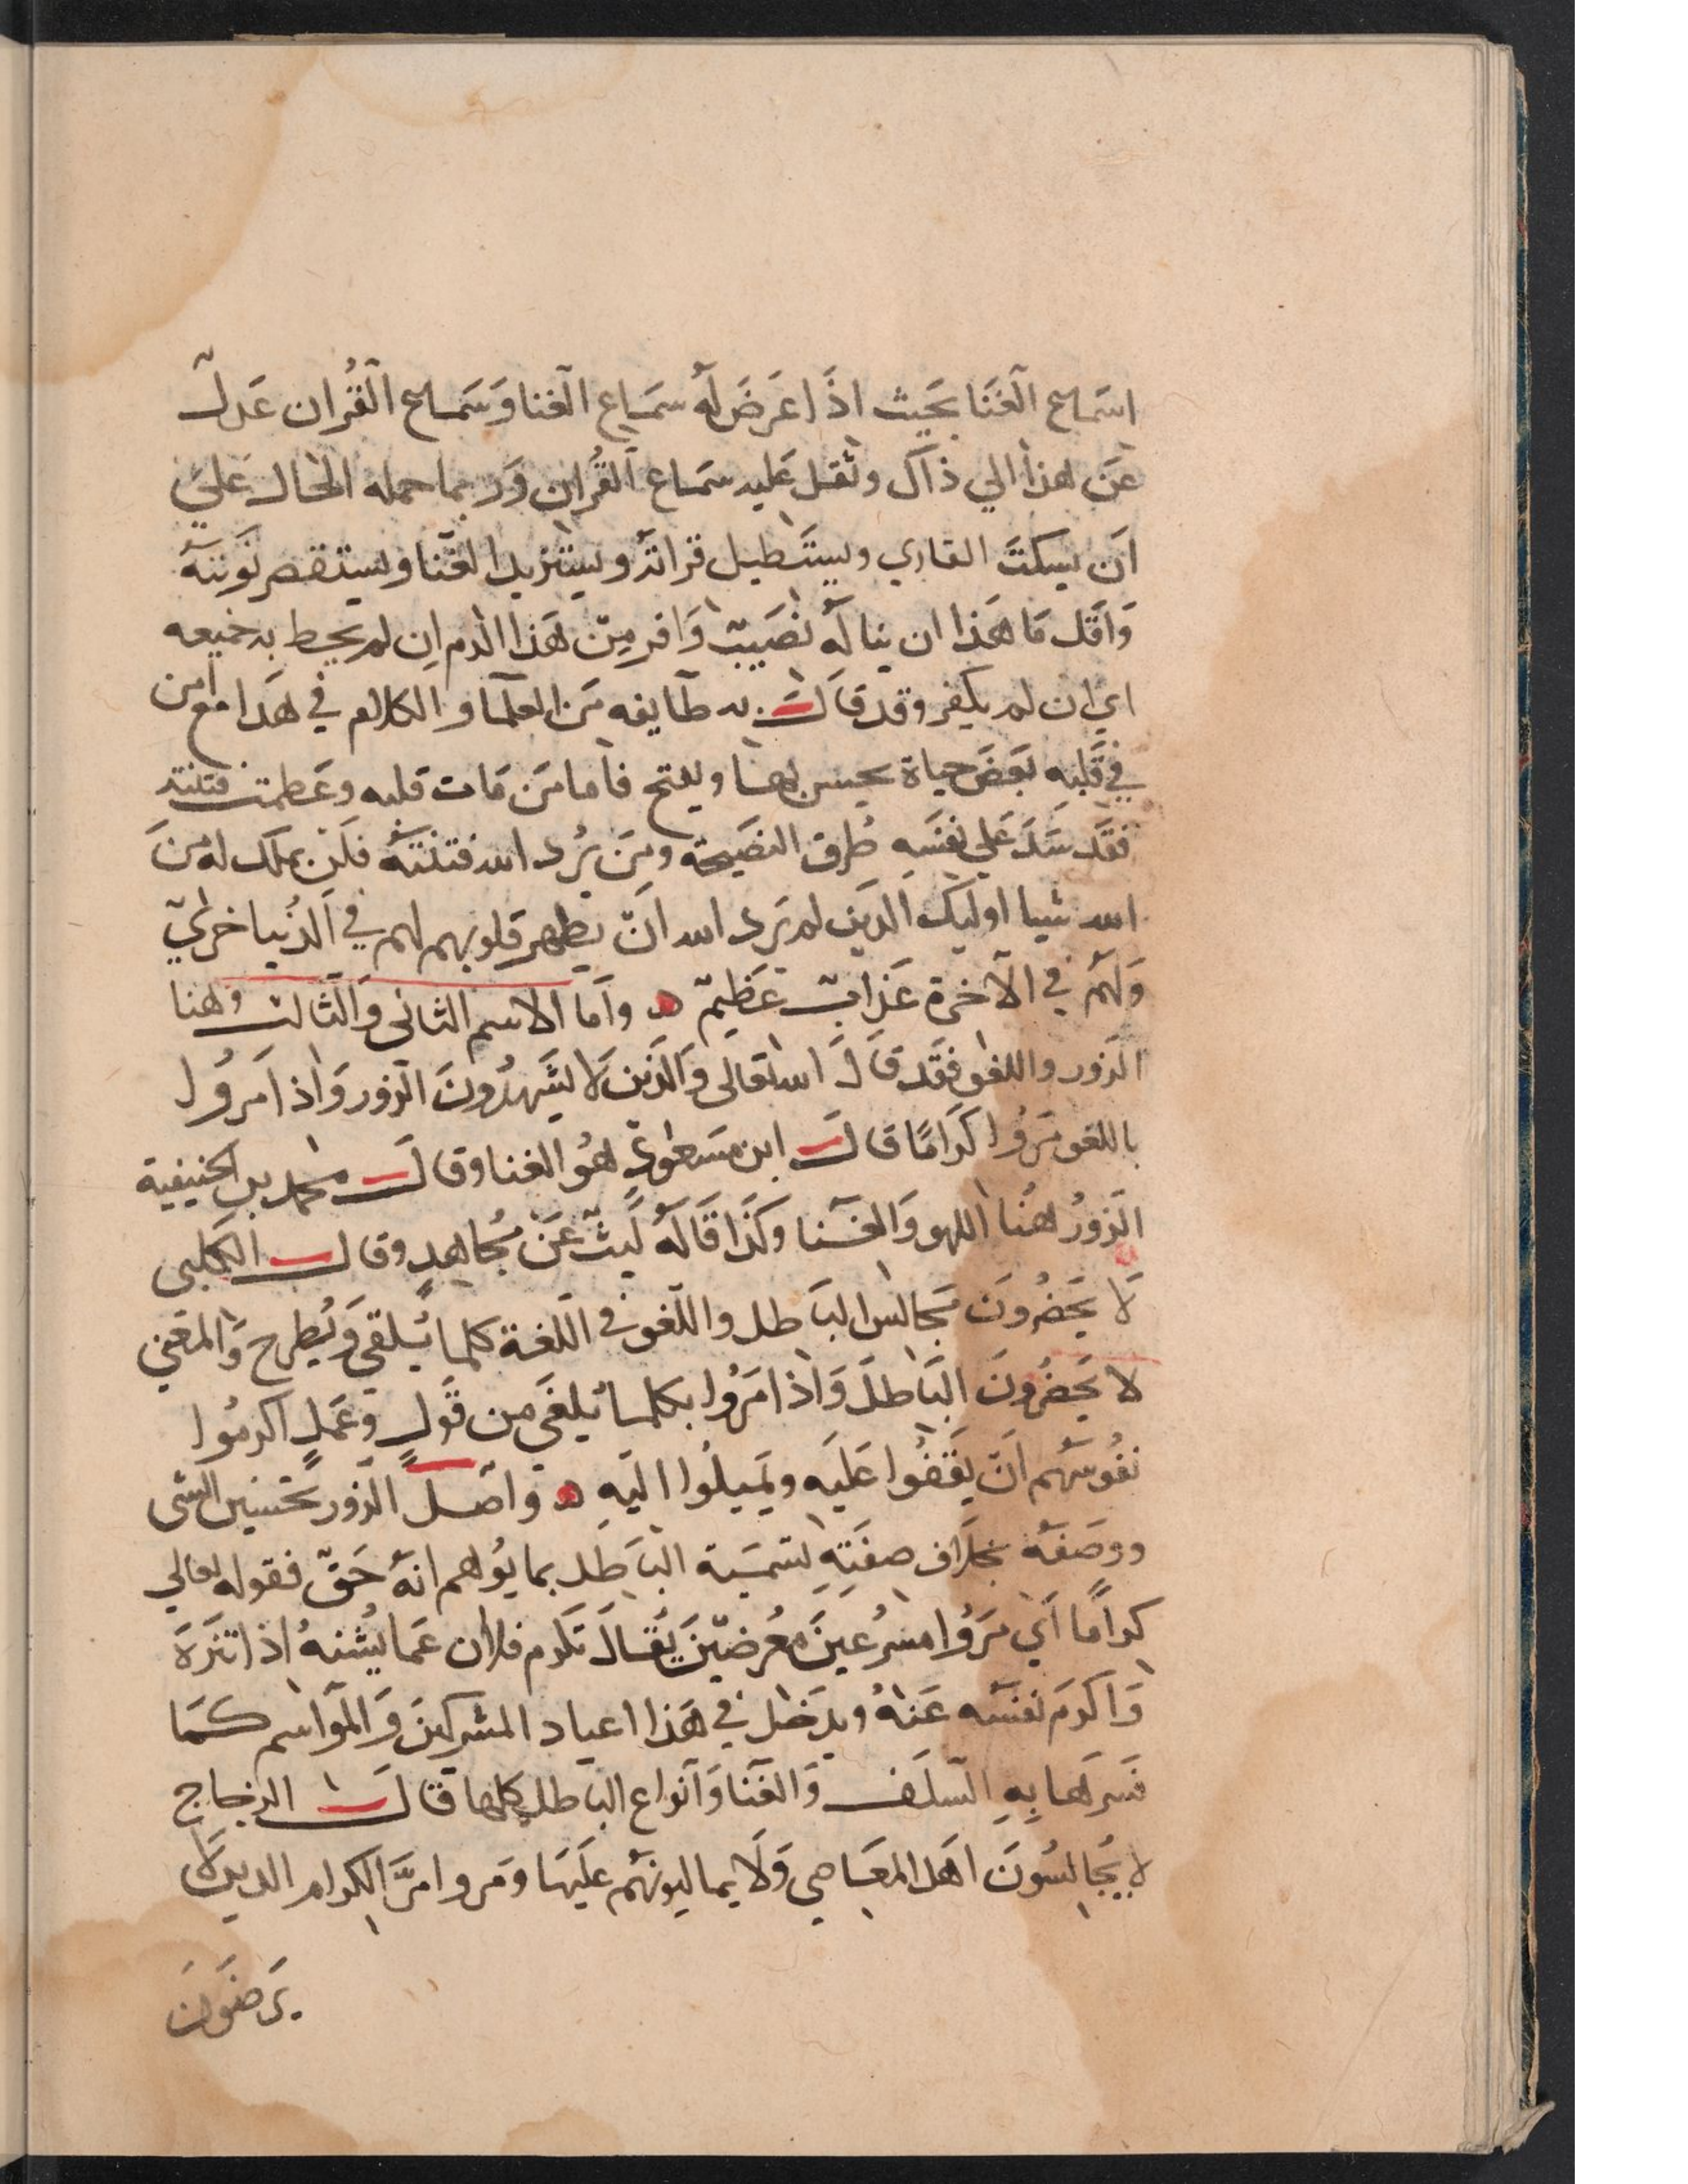 اسماع الغَنَا بحَيث اذَا عَرَضَ لَهُ سمَاع الغنا وَسَماع القُران عَدلَ
عَن هذا الي ذاك وثقل عَليه سَماع القُران وَربما حمله الحال عَليَ
اَن يسكتَ القاري ويستَطيل قراتهُ ويستزيد الغَنا ويستقصر نَوبتهُ
وَاقل مَا هَذا ان يناله نصَيبٌ وَافر مِن هَذا الذم ان لم يحط به جميعه
اي ان لم يكفر وقد قالت به طآيفه مَن العلمَا والكلام في هَذا مع من
في قَلبهِ بَعضَ حياة يحسن بها ويفتح فاما مَن مَات قلبه وعَظمت فتنته
فقَد سَدَ عَلي نفسَهِ طُرق النصَيحة ومَن يُرد الله فتنتهُ فلَن يملك له مِنَ
الله شيا اوليك الذين لم يَرد الله اَن يطهر قلوبهم لهم في الدُنيا خزيٌ
وَلهُم في الآخرة عَذابٌ عَظيمٌ ه وَاما الاسم الثاني وَالثالث وهنا
الزور واللغو فقَد قَالَ الله تعالى وَالذين لَا يشَهدُونَ الزور وَاذا مَروُا
باللغو مَروُا كَرامًا قال ابن مسَعُودٍ هُو الغنا وقال محمد بن الحنيفية
الزورُ هنُا اللهو وَالغنَا وكَذَا قَالهُ لَيثٌ عَن مُجَاهدٍ وقال الكلبى
لَا يحَضُرونَ مجَالس البَاطل واللغو في اللغة كلما يُلقى وَيُطرح وَالمعَنى
لا يحَضُرونَ البَاطلَ وَاذا مَروُا بكلما يُلغَي من قَولٍ وعَملٍ اكرمُوا
نفُوسَهُم اَن يَقفُوا عَليَه ويمَيلُوا اليَهِ ه وَاصل الزور تحسَين الشى
ووصَفهُ بخلَاف صفَتِهِ لتسمَية البَاطَل بما يوُهم انهُ حَقٌ فقوله تعالي
كرامًا اَي مَروُا مسرُعيَنَ معُرضيَنَ يقُالَ تكرم فلان عَما يشُنهُ اذا تنَزهَ
وَاكرمَ نفسَهُ عَنهُ ويدخَل في هَذا اعياد المشركينَ وَالموَاسم كما
فسَرهَا بهِ السلَف وَالغنَا وَانواع الباطل كلها قالَ الزجاج
لا يُجَالسُونَ اهل المعَاصي وَلَا يماليونهُم علَيهَا ومَروا مَرَّ الكرام الذينَ لَا
يَرضَونَ